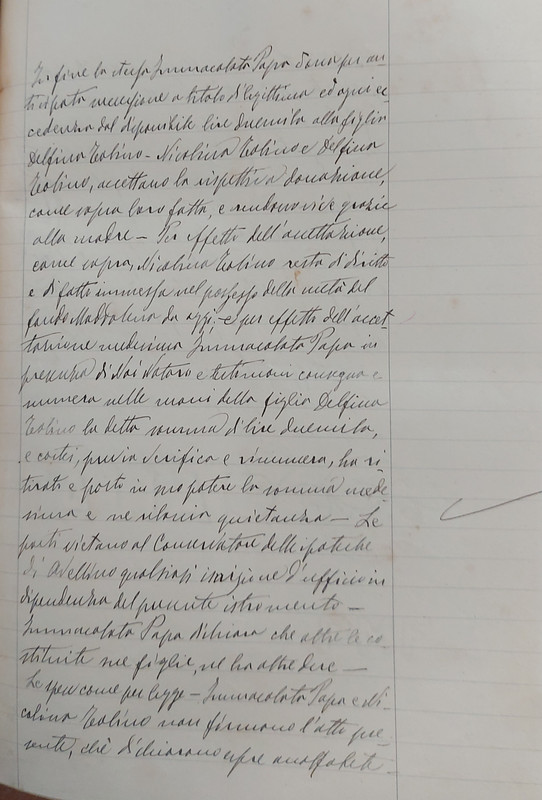 In fine la stessa Immacolata Papa dona per an-
ticipata successione a titolo di legittima ed ogni ec-
cedenza dal disponibile lire duemila alla figlia
Delfina Tolino — Nicolina Tolino e Delfina
Tolino, accettano la rispettiva donazione,
come sopra loro fatta, e rendono vive grazie
alla madre — Per effetto dell'accettazione,
come sopra, Nicolina Tolino resta di diritto
e di fatto immessa nel possesso della metà del
fondo Maddalena da oggi, e per effetto dell'accet-
tazione medesima Immacolata Papa in
presenza di Noi Notaro e testimoni consegna e
numera nelle mani della figlia Delfina
Tolino la detta somma di lire duemila,
e costei, previa verifica e rinumera, ha ri-
tirato e posto in suo potere la somma mede-
sima e ne rilascia quietanza — Le
parti vietano al Conservatore delle ipoteche
di Avellino qualsiasi iscrizione d'ufficio in
dipendenza del presente istromento —
Immacolata Papa dichiara che oltre le co-
stituite sue figlie, ne ha altre due —
Le spese come per legge — Immacolata Papa e Ni-
colina Tolino non firmano l'atto pre-
sente, chè dichiarano essere analfabete —